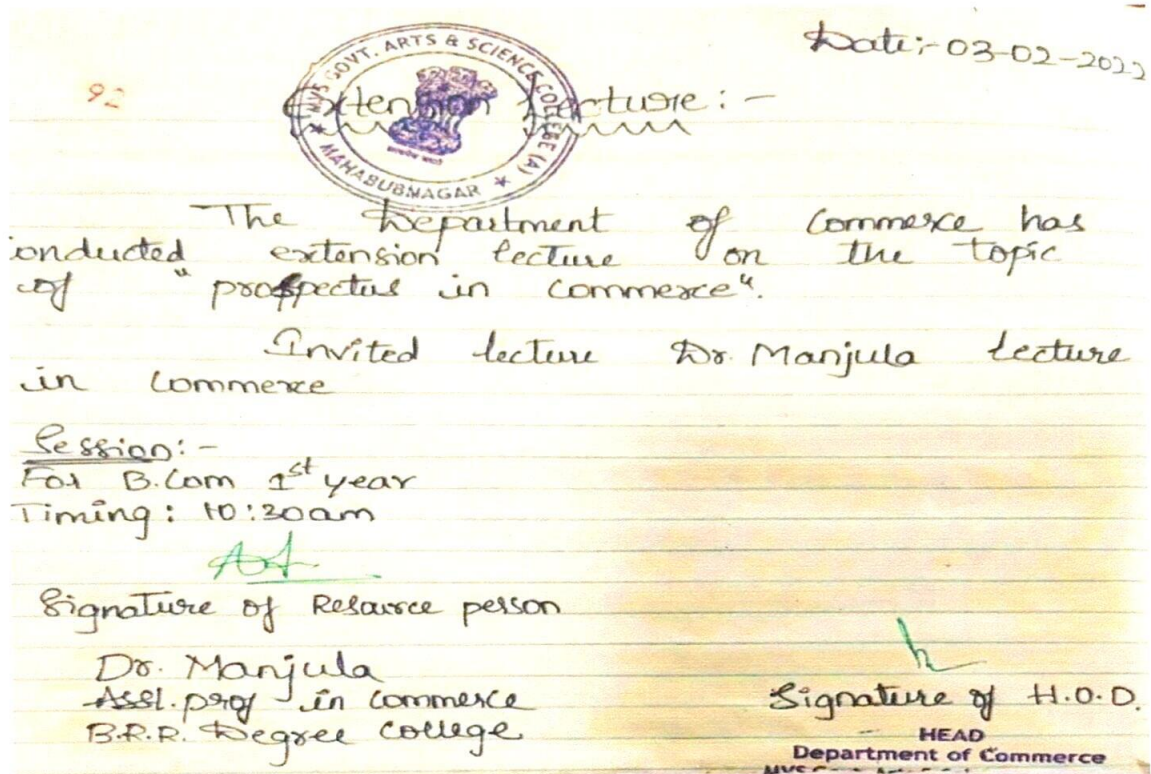 Date:- 03-02-2022
92
Extension Lecture:-
* MVS GOVT. ARTS & SCIENCE COLLEGE (A) *
MAHABUBNAGAR
The Department of Commerce has
onducted extension lecture on the topic
of "prospectus in commerce".
Invited lecture Dr. Manjula lecture
in Commerce
Session:-
For B.Com 1st year
Timing: 10:30am
Signature of Resource person
Dr. Manjula
Asst. prof in commerce
B.R.R. Degree College
Signature of H.O.D.
HEAD
Department of Commerce